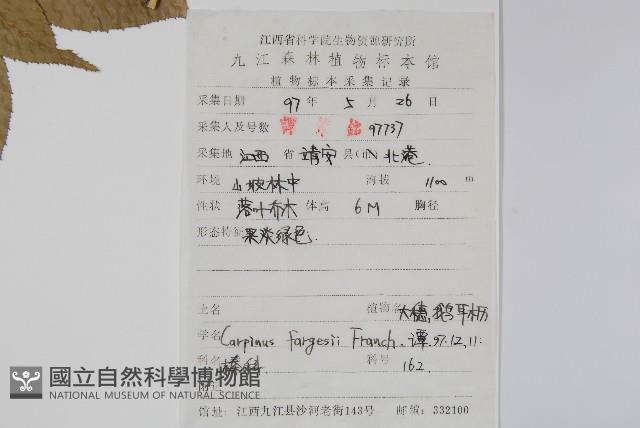 江西省科学院生物资源研究所
九江森林植物标本馆
植物标本采集记录
采集日期 97 年 5 月 26 日
采集人及号数 97737
采集地 江西 省 靖安 县(市) 北港
环境 山坡林中 海拔 1100 m
性状 落叶乔木 体高 6M 胸径
形态特征 果淡绿色.
土名 植物名 大穗鹅耳枥
学名 Carpinus fargesii Franch. 谭 97.12.11.
科名 榛科 科号 162.
附记
馆址: 江西九江县沙河老街143号 邮编: 332100
國立自然科學博物館
NATIONAL MUSEUM OF NATURAL SCIENCE